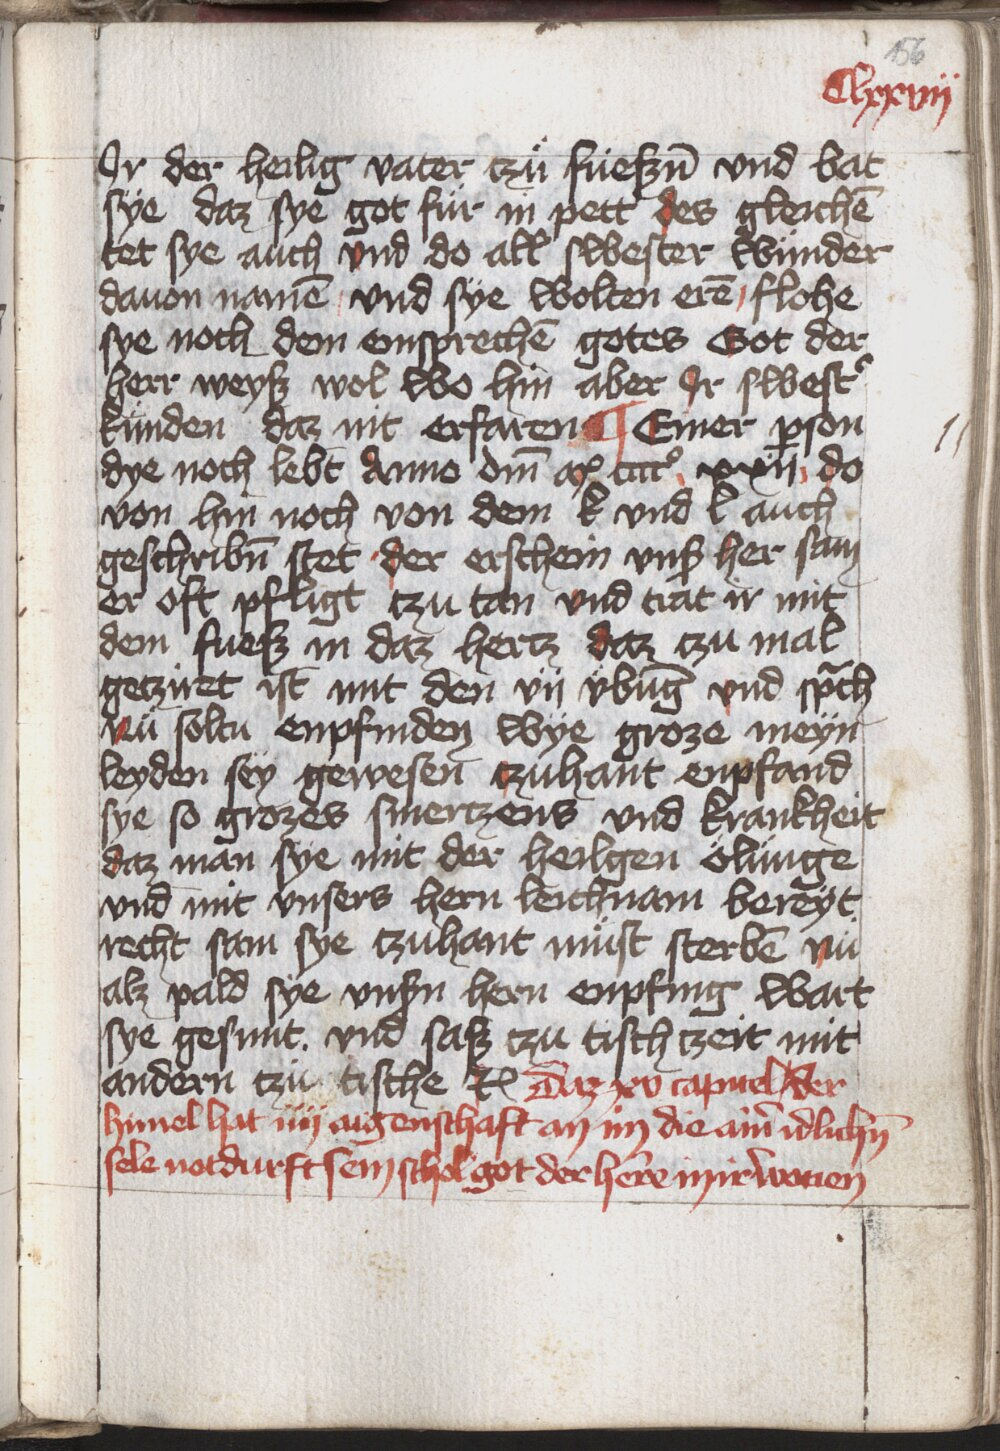 156
Clxxviij
Ir der heilig vater tzu̇ füeßn̄ vnd bat
sÿe daz sye got für in pett des gleichē
tet sye auch vnd do all swester wunder
dauon namē vnd sÿe wolten erē flohe
sye noch dem einsprechē gotes Got der
herr weyß wol wo hin aber Ir swest͛
kunden daz nit erfaren ¶ Einer ꝑson
dye noch lebt Anno dm̄ mͦ ccccͦ xxij do
von hin noch von dem k vnd l auch
geschribn̄ stet der erschein vnß her sam
er oft pfligt tzu tan vnd trat ir mit
dem fueß in daz hertz daz tzu mal
getziret ist mit den vij ÿbu̅g vnd sp̄ch
nu soltu enpfinden wye groze meyn
leyden sey gewesen tzuhant enpfand
sye so grozes smertzens vnd krankheit
daz man sye mit der heilgen ölunge
vnd mit vnsers hern leichnam bereÿt
recht sam sye tzuhant müst sterbē nu
alz pald sye vnßn hern enpfing wart
sye gesunt. vnd saß tzu tisch tzeit mit
andern tzu tische ꝛc Daz xv capitel Der
himel hat iiij aigenschaft an im die aim̄ idlichn̄
sele notdurft sein schol got der herre in ir wonen